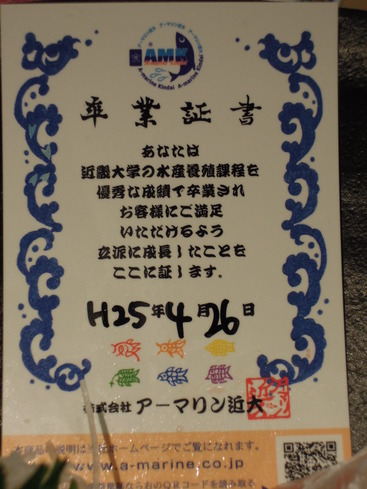 AMK
A-marine Kindai A-marine Kindai
卒業証書
あなたは
近畿大学の水産養殖課程を
優秀な成績で卒業され
お客様にご満足
いただけるよう
立派に成長したことを
ここに証します。
H25年4月26日
株式会社 アーマリン近大
本商品の説明は当社ホームページでご覧になれます。
www.a-marine.co.jp
右のQRコードを読み取る